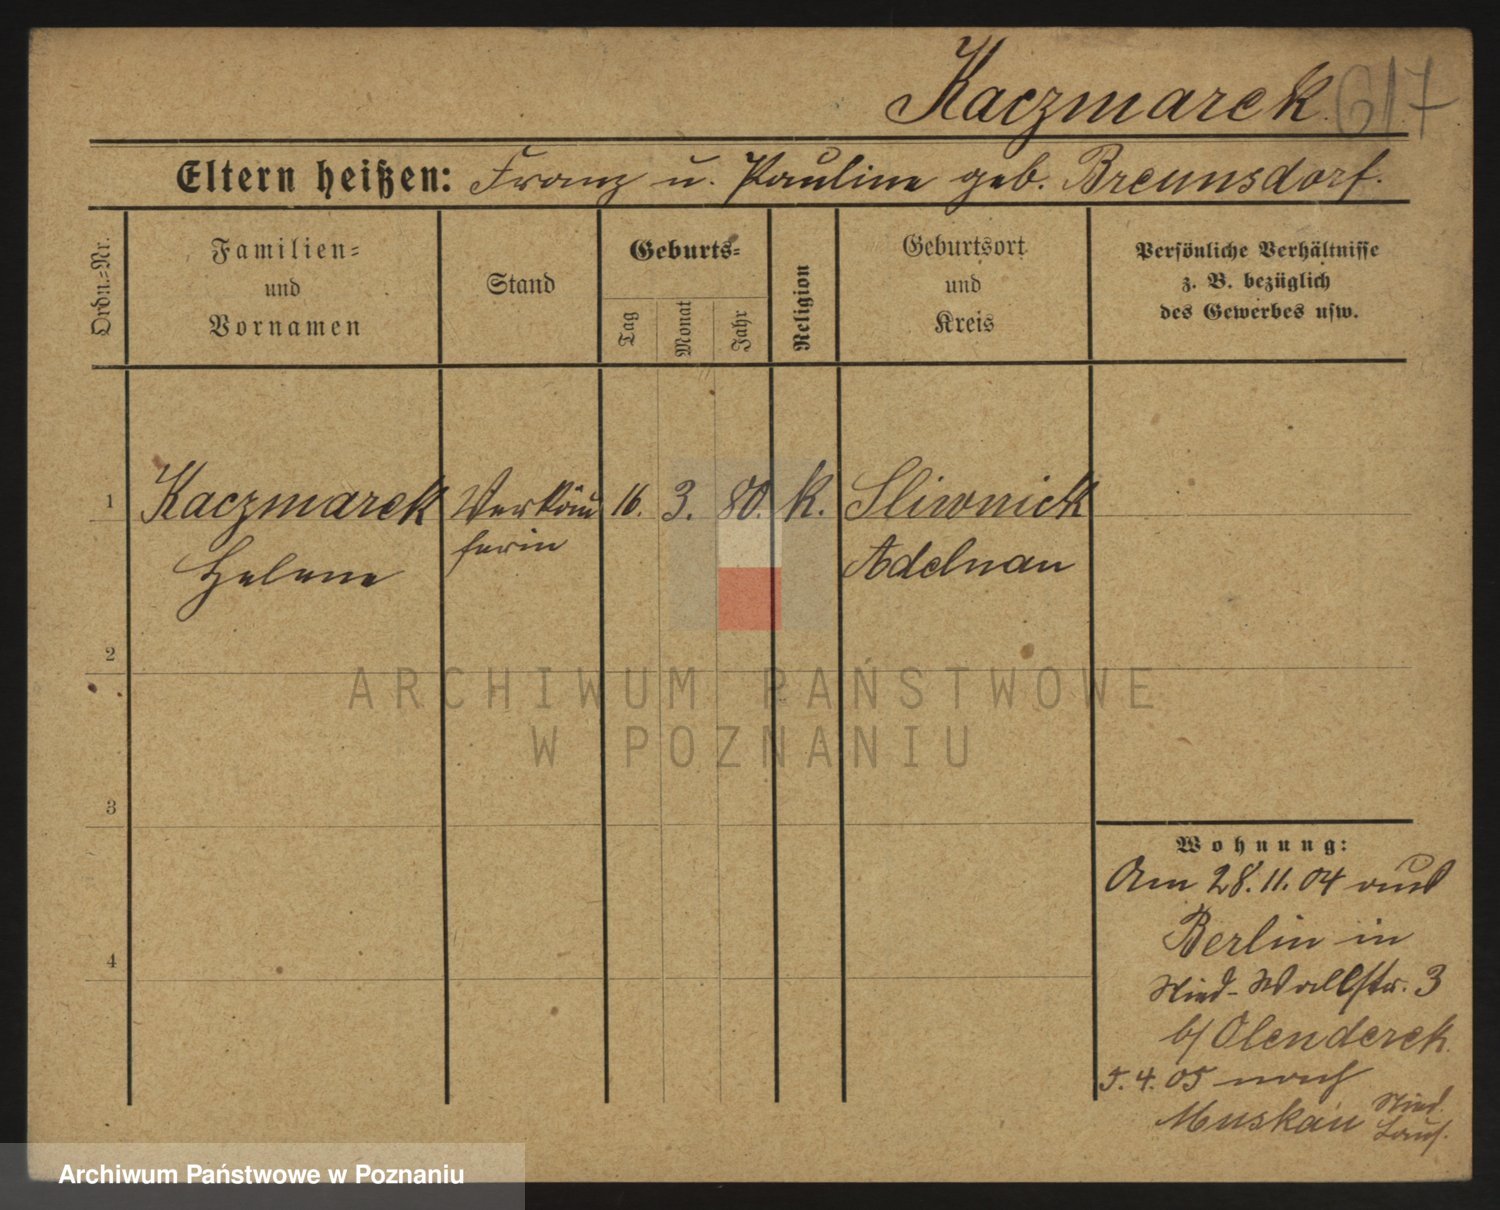 Kaczmarek 617
Eltern heißen: Franz u. Pauline geb. Breunsdorf.
Ordn.-Nr.
Familien-
und
Vornamen
Stand
Geburts-
Tag
Monat
Jahr
Religion
Geburtsort
und
Kreis
Persönliche Verhältnisse
z. B. bezüglich
des Gewerbes usw.
1 Kaczmarek Verkäu 16. 3. 80. k. Sliwnick
Helene ferin Adelnau
2
3
4
ARCHIWUM PAŃSTWOWE
W POZNANIU
Wohnung:
Am 28.11.04 aus
Berlin in
Nied-Wallstr. 3
b/ Olenderek
5.4.05 nach
Muskau Nied.
Laus.
Archiwum Państwowe w Poznaniu